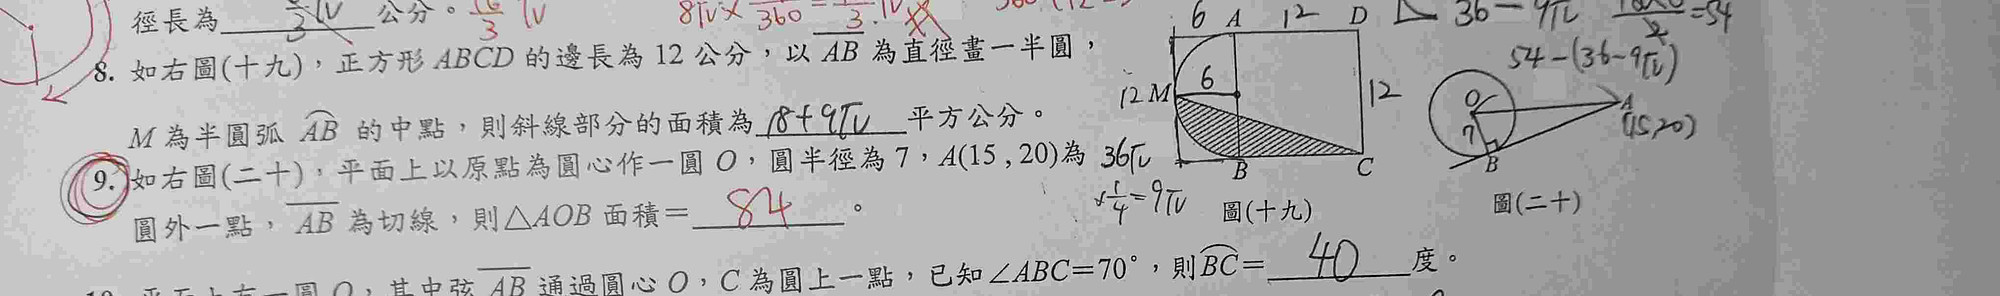 徑長為 公分。 16/3 π
8. 如右圖(十九)，正方形 ABCD 的邊長為 12 公分，以 AB 為直徑畫一半圓，
M 為半圓弧 AB 的中點，則斜線部分的面積為 18+9π 平方公分。
9. 如右圖(二十)，平面上以原點為圓心作一圓 O，圓半徑為 7，A(15 , 20)為
圓外一點，AB 為切線，則△AOB 面積＝ 84 。
平面上有一圓 O，其中弦 AB 通過圓心 O，C 為圓上一點，已知∠ABC＝70°，則BC＝ 40 度。
6 A 12 D
12 M 6 12
B C
圖(十九)
36π
×1/4=9π
36-9π
=54
54-(36-9π)
O A
7 (15,20)
B
圖(二十)